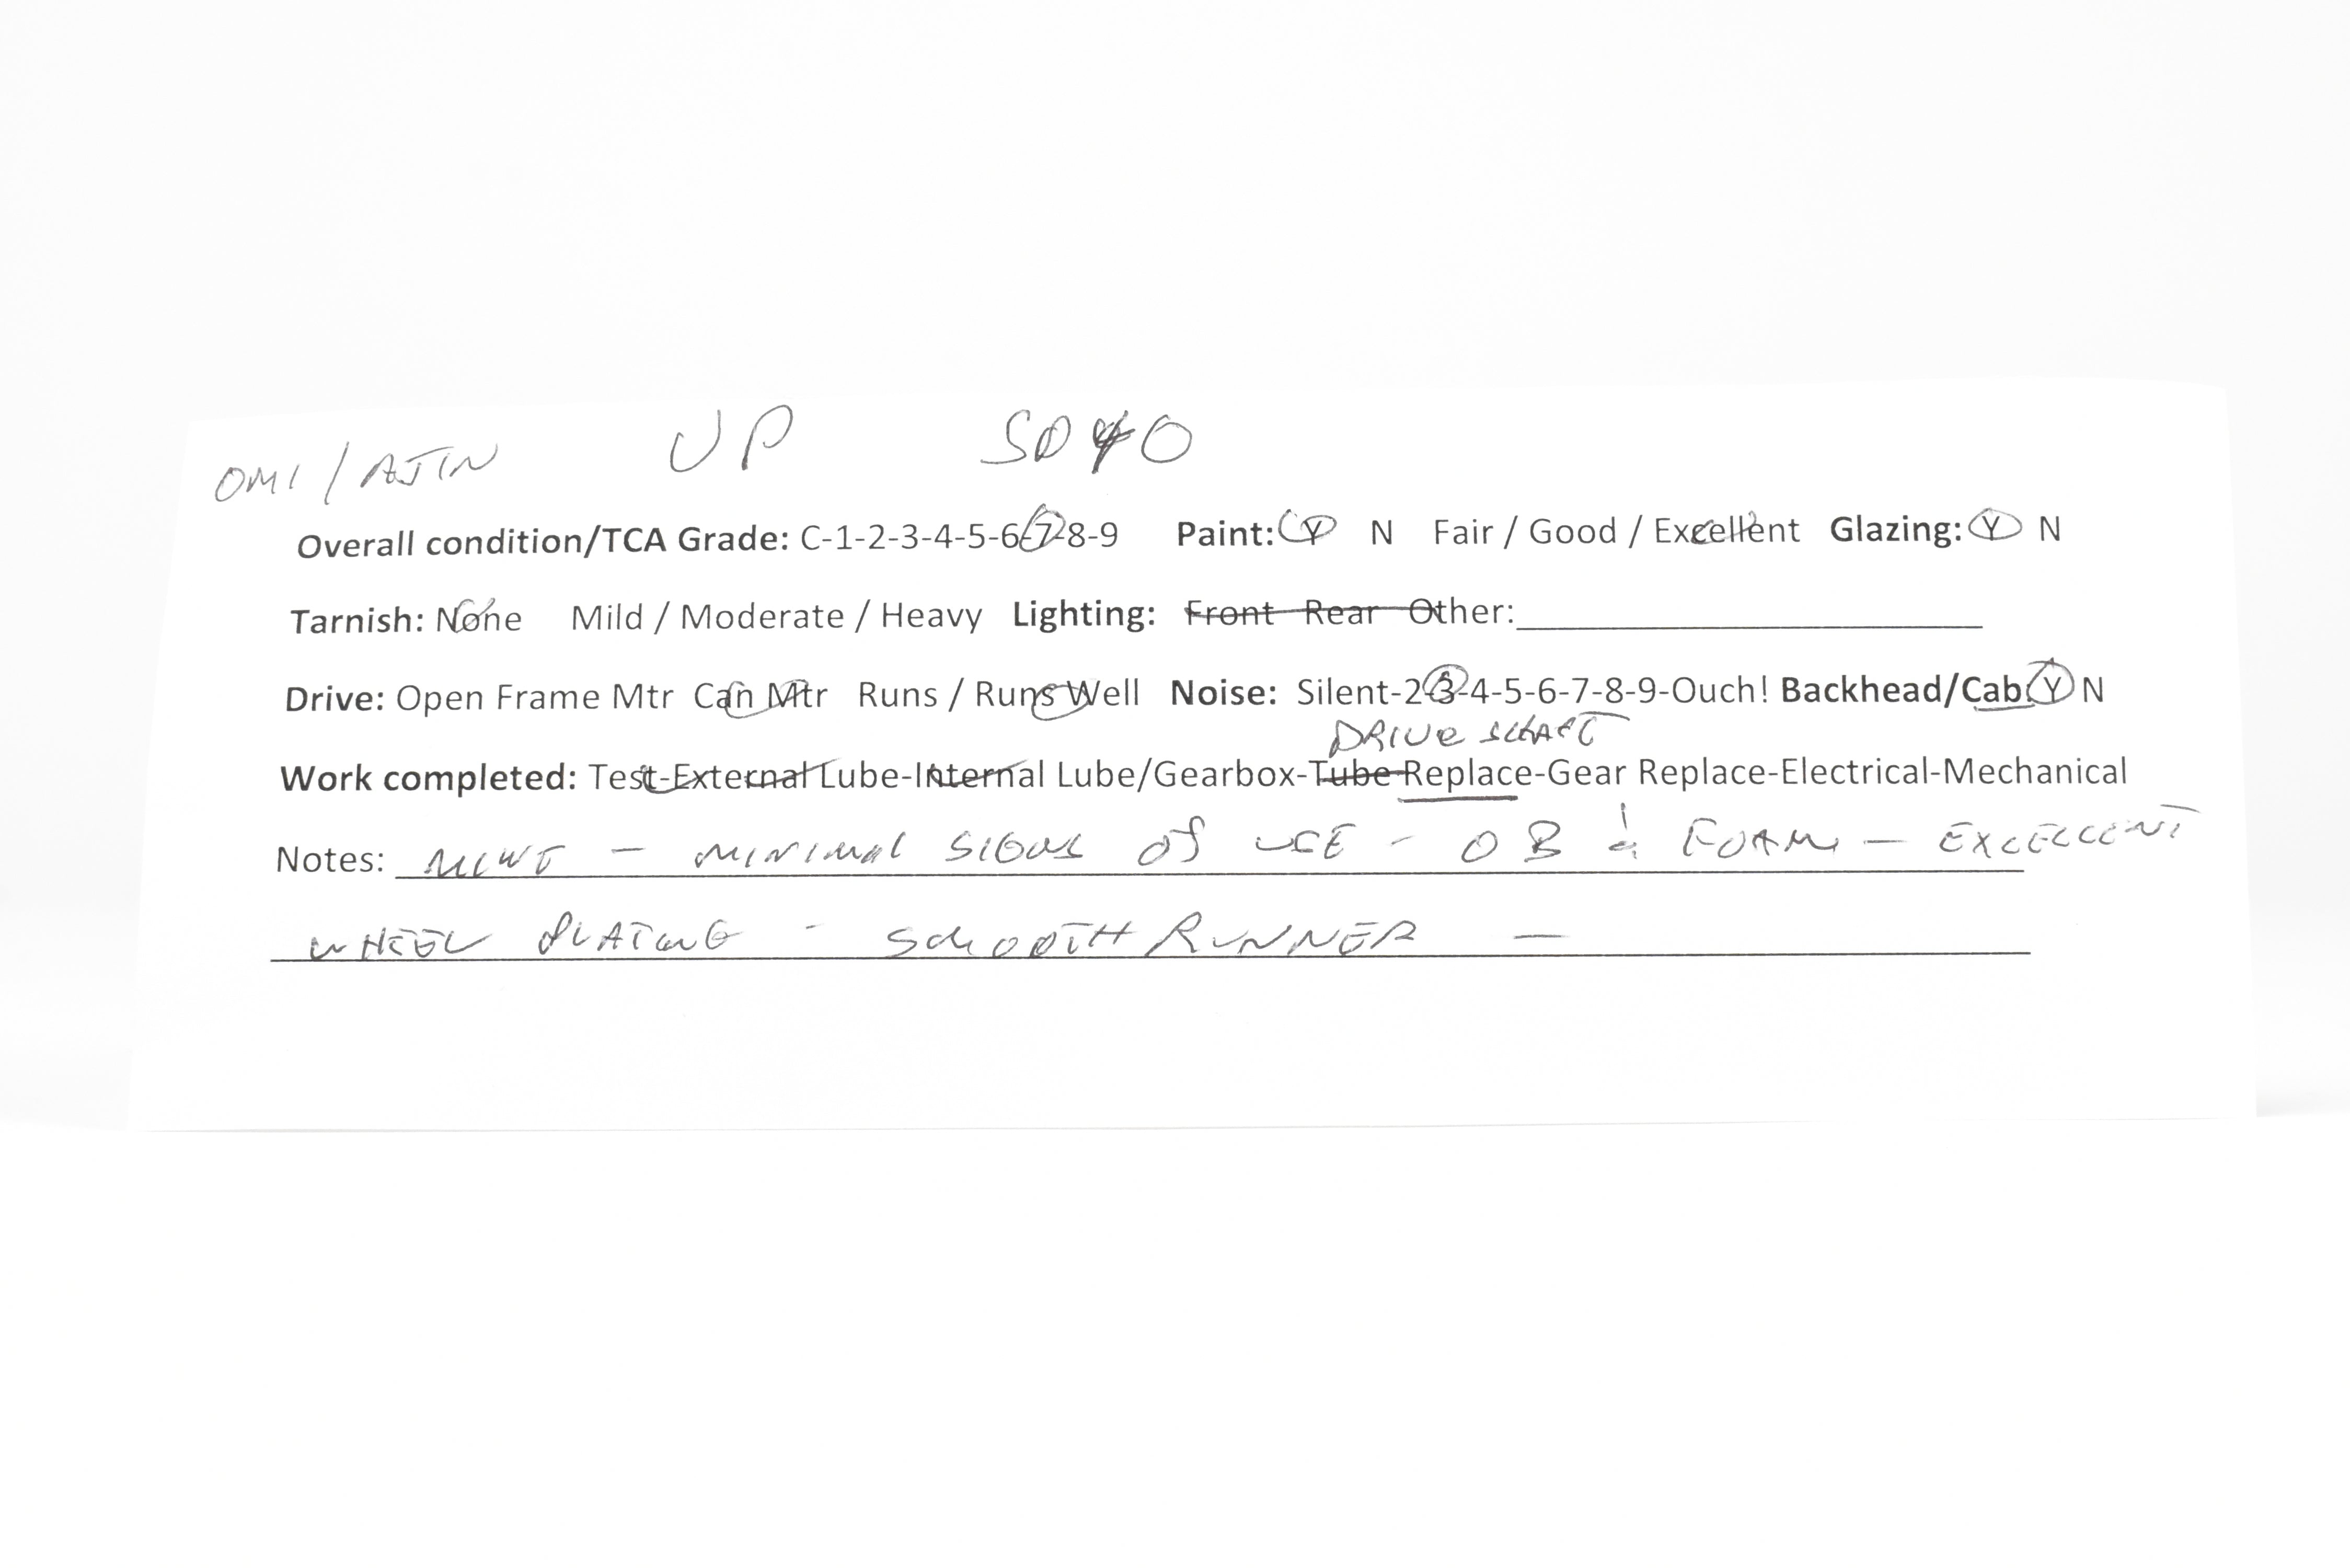 OMI / AJIN UP SD40
Overall condition/TCA Grade: C-1-2-3-4-5-6-7-8-9 Paint: Y N Fair / Good / Excellent Glazing: Y N
Tarnish: None Mild / Moderate / Heavy Lighting: Front Rear Other:
Drive: Open Frame Mtr Can Mtr Runs / Runs Well Noise: Silent-2-3-4-5-6-7-8-9-Ouch! Backhead/Cab: Y N
DRIVE SHAFT
Work completed: Test-External Lube-Internal Lube/Gearbox-Tube Replace-Gear Replace-Electrical-Mechanical
Notes: - MINIMAL SIGNS OF USE - OB & FOAM - EXCELLENT
WHEEL PLATING - SMOOTH RUNNER -